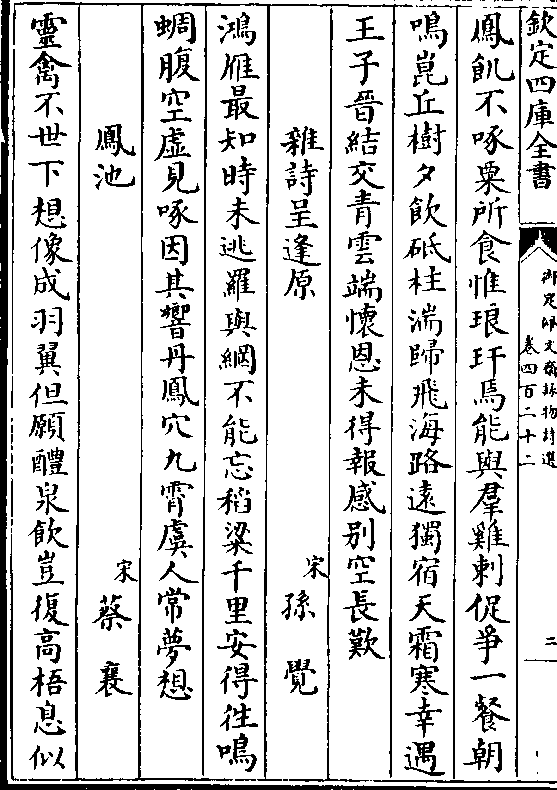 欽定四庫全書
御定佩文齋詠物詩選
卷四百二十二
二
鳳飢不啄粟所食惟琅玕焉能與羣雞刺促爭一餐朝
鳴崑丘樹夕飲砥柱湍歸飛海路遠獨宿天霜寒幸遇
王子晉結交青雲端懷恩未得報感別空長歎
雜詩呈逢原
宋 孫覺
鴻雁最知時未逃羅與網不能忘稻粱千里安得徃鳴
蜩腹空虛見啄因其響丹鳳穴九霄虞人常夢想
鳳池
宋 蔡襄
靈禽不世下想像成羽翼但願醴泉飲豈復高梧息似